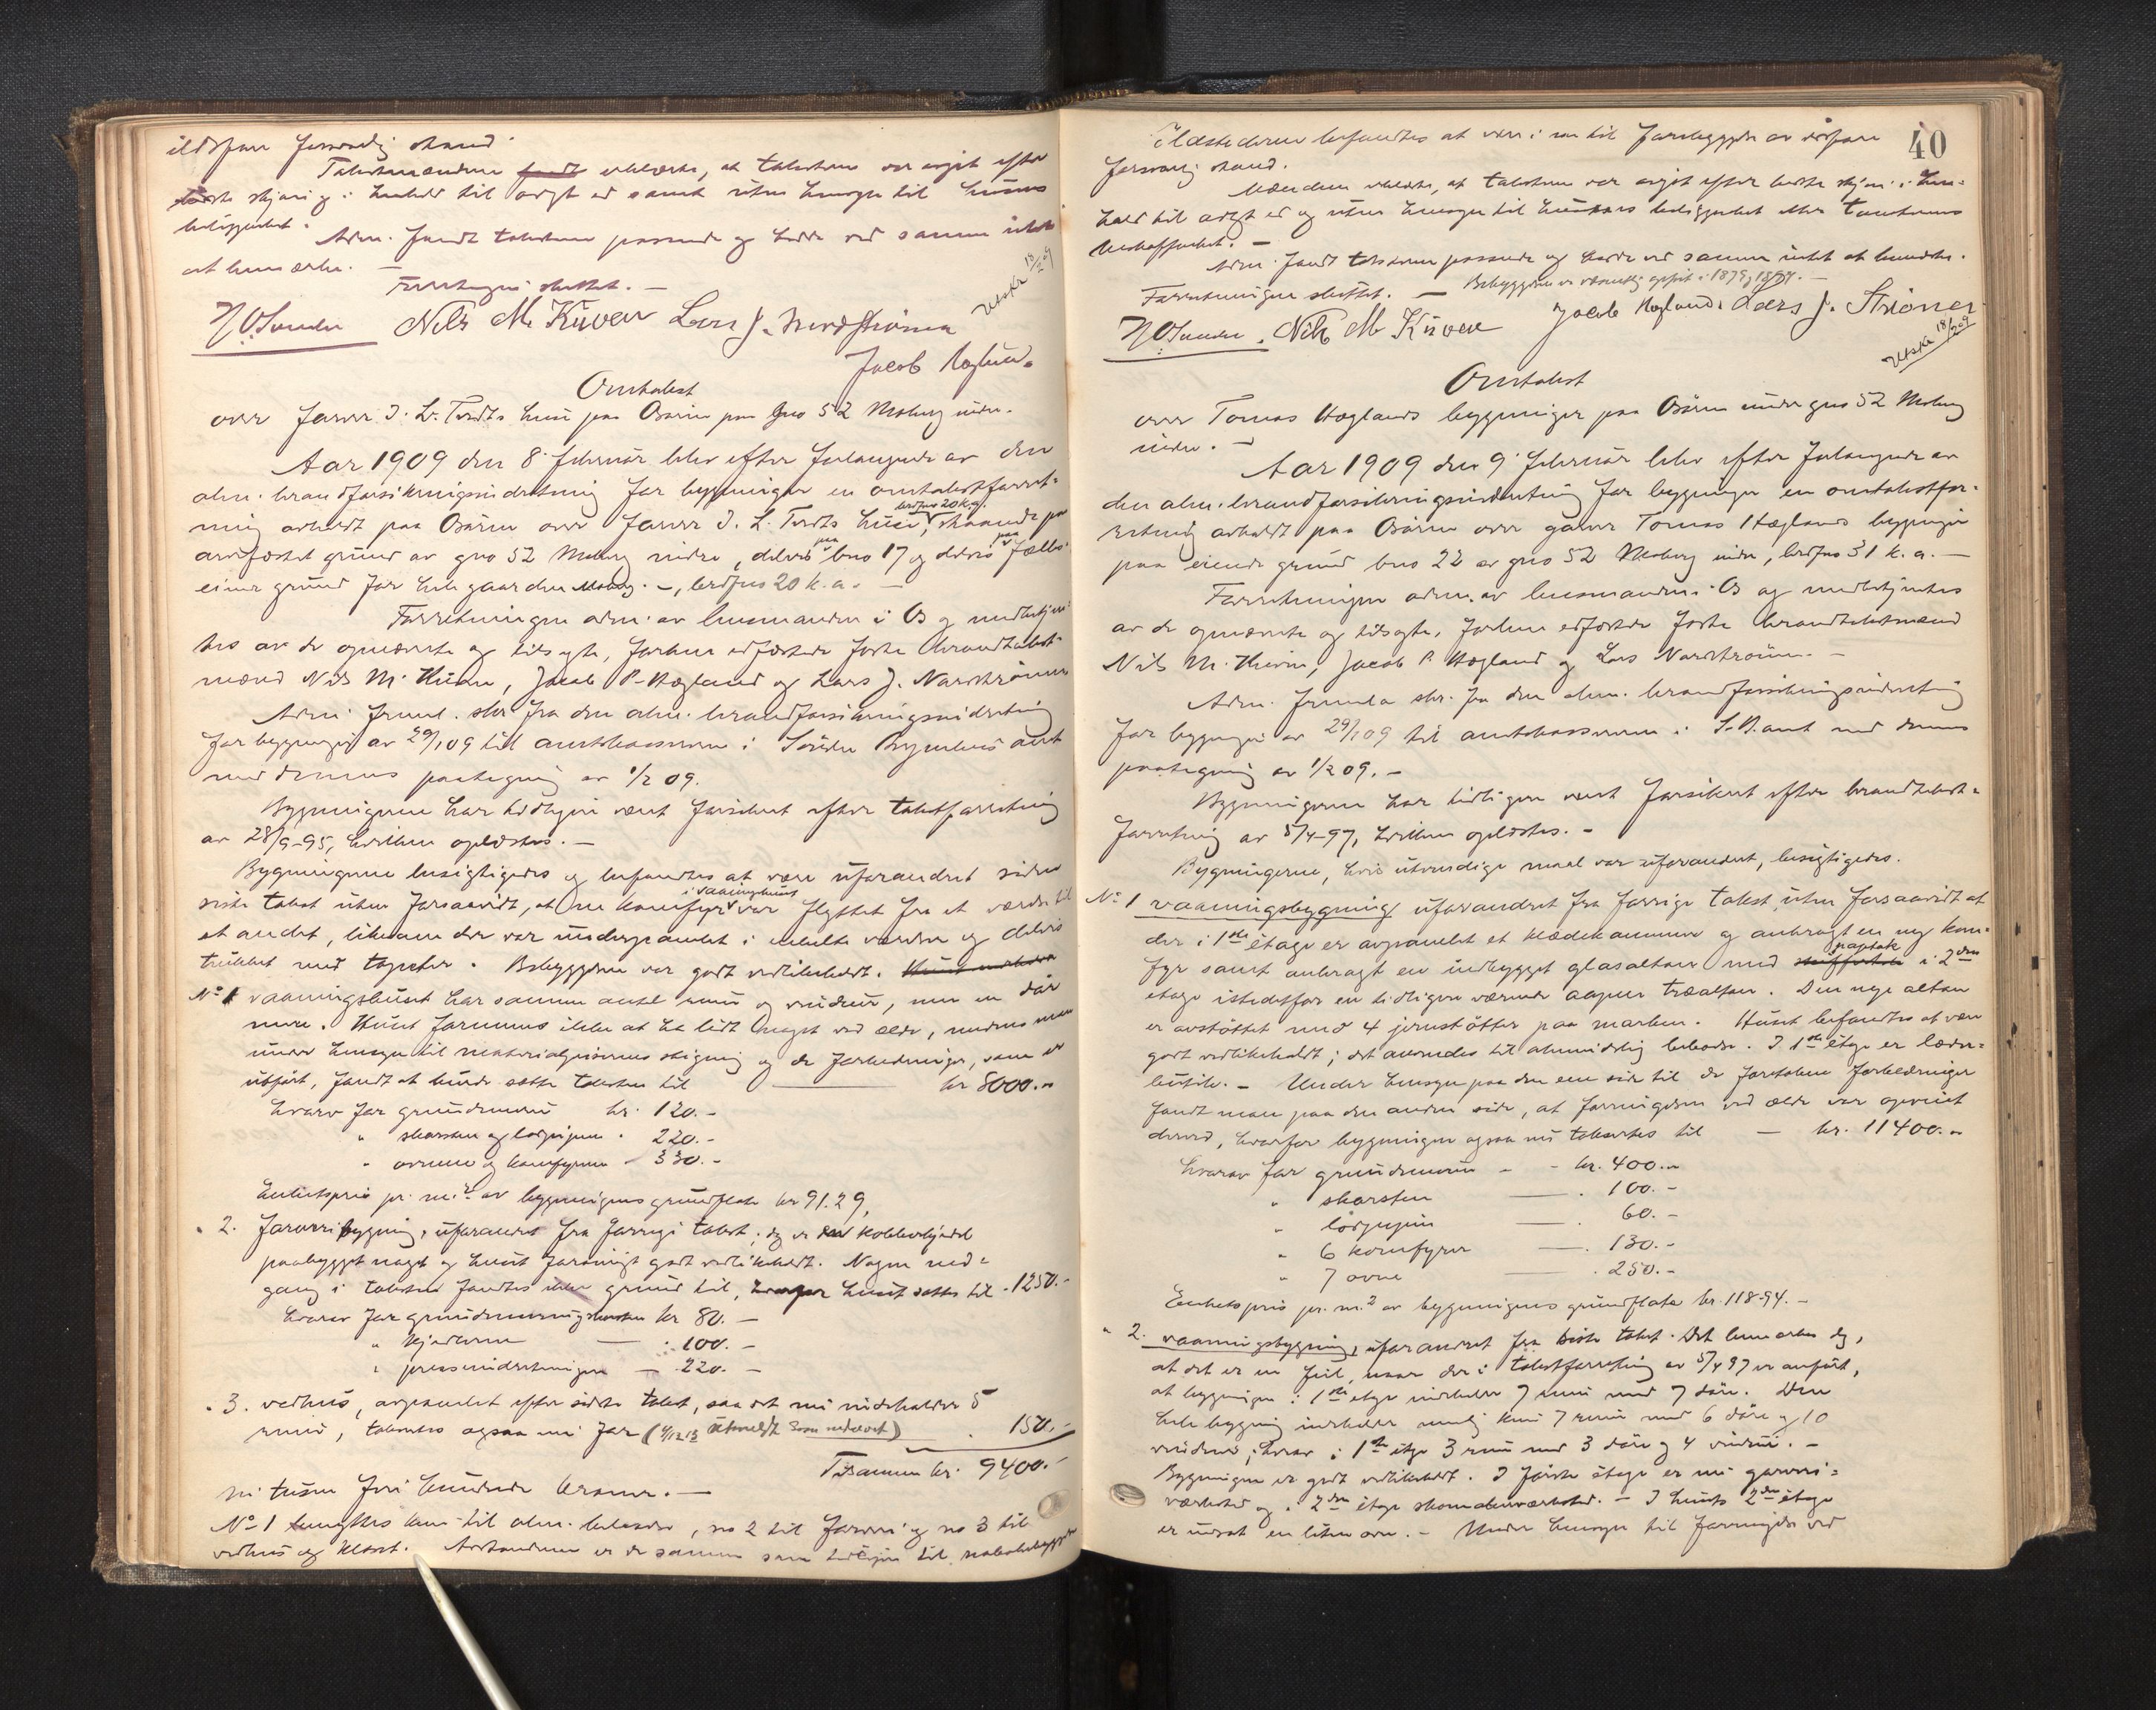 ildsfare forsvarlig stand.
Takstmændene fandt erklærte, at taksten var avgit efter
bedste skjøn og i henhold til avgit ed samt uten hensyn til husenes
beliggenhet.
Adm. fandt taksten passende og hadde ved samme intet
at bemerke. —
Forretningen sluttet. —
N O Sunde Nils M. Kuven Lars J. Nordstrønen
Utskr. 18/2 09
Jacob Hogland.
Omtakst
over farver J. L. Tvedts hus paa Osøren paa gno 52 Moberg nedre.
Aar 1909 den 8 februar blev efter forlangende av den
alm. brandforsikringsindretning for bygninger en omtakstforret-
ning avholdt paa Osøren over farver J. L. Tvedts huse, brdfno 20 k.a. staaende paa
andfæstet grund av gno 52 Moberg nedre, delvis paa bno 17 og delvis paa fælles
eiende grund for hele gaarden Moberg. —, brdfno 20 k. a. —
Forretningen adm. av lensmanden i Os og medbetjen-
tes av de opnævnte og tilsagte, forhen edfæstede faste brandtakst-
mænd Nils M. Kuven, Jacob P. Hægland og Lars J. Nordstrønen
Adm. freml. skr. fra den alm. brandforsikringsindretning
for bygninger av 29/1 09 til amtskassereren i Søndre Bergenhus amt
med dennes paategning av 1/2 09.
Bygningene har tidligere været forsikret efter takstforretning
av 28/9-95, hvilken oplæstes. —
Bygningene besigtigedes og befandtes at være uforandret siden
siste takst uten forsaavidt, at en komfyr i vaaningshuset var flyttet fra et værelse til
et andet, likesom der var underpanelet i enkelte værelser og delvis
trukket med tapeter. Bebyggelsen var godt vedlikeholdt.
No 1 vaaningshuset har samme antal rum og vinduer, men en dør
mere. Huset formenes ikke at ha lidt noget ved ælde, medens man
under hensyn til materialprisernes stigning og de forbedringer, som er
utført, fandt at burde sætte taksten til — kr 8000.-
hvorav for grundmuren kr. 120.-
" skorsten og lodpipen " 220.-
" ovnene og komfyrene " 330.-
Enhetspris pr. m.² av bygningens grundflate kr 91.29,
" 2. farveribygning, uforandret fra forrige takst; dog er
paabygget noget og huset forøvrigt godt vedlikeholdt. Nogen ned-
gang i taksten fandtes ikke grund til, huset sættes til - 1250.-
hvorav for grundmuren og skorsten kr 80. —
" kjedlerne — : 100. —
" presseindretningen — 220. —
" 3. vedhus, avpanelet efter sidste takst, saa det nu indeholder 5
rum, takseres ogsaa nu for (4/12 13 utmeldt som nedrevet) . 150.-
Tilsammen kr. 9400.-
ni tusen fire hundrede kroner. —
No 1 benyttes kun til alm. beboelse, no 2 til farveri og no 3 til
vedhus og klosset. Avstandene er de samme som tidligere til nabobebyggelse
40
Ildstederne befandtes at være i en til forebyggelse av ildsfare
forsvarlig stand.
Mændene erklærte, at taksten var avgit efter bedste skjøn i hen-
hold til avlagt ed og uten hensyn til husenes beliggenhet eller tomtens
beskaffenhet. —
Adm. fandt taksterne passende og hadde ved samme intet at bemerke.
Forretningen sluttet. — Bebyggelsen er væsentlig opført i 1879, 1894. —
N O Sunde. Nils M Kuven Jacob Hogland. Lars J. Strønen
Utskr. 18/2 09
Omtakst
over Tomas Hæglands bygninger paa Osøren under gno 52 Moberg
nedre. —
Aar 1909 den 9 februar blev efter forlangende av
den alm. brandforsikringsindretning for bygninger en omtakstfor-
retning avholdt paa Osøren over garver Tomas Hæglands bygninger
paa eiende grund bno 22 av gno 52 Moberg nedre, brdfno 31 k. a. —
Forretningen adm. av lensmanden i Os og medbetjentes
av de opnævnte og tilsagte, forhen edfæstede faste brandtakstmænd
Nils M. Kuven, Jacob P. Hægland og Lars Nordstrønen. —
Adm. fremla skr. fra den alm. brandforsikringsindretning
for bygninger av 29/1 09 til amtskassereren i S. B. amt med dennes
paategning av 1/2 09. —
Bygningerne har tidligere været forsikret efter brandtakst-
forretning av 5/4-97, hvilken oplæstes. —
Bygningerne, hvis utvendige maal var uforandret, besigtigedes.
No 1 vaaningsbygning uforandret fra forrige takst, uten forsaavidt at
der i 1ste etage er avpanelet et klædekammer og anbragt en ny kom-
fyr samt anbragt en indbygget glasaltan med paptak i 2den
etage istedetfor en tidligere værende aapen træaltan. Den nye altan
er avstøttet med 4 jernstøtter paa marken. Huset befandtes at være
godt vedlikeholdt; det anvendes til almindelig beboelse. I 1ste etage er læder-
butik. — Under hensyn paa den ene side til de foretakne forbedringer
fandt man paa den anden side, at forringelsen ved ælde var opveiet
derved, hvorfor bygningen ogsaa nu takseres til — kr. 11400.-
hvorav for grundmuren - - kr. 400.-
" skorsten — . 100. -
" lodpipen — . 60. -
" 6 komfyrer — . 130. -
" 7 ovne — . 250. -
Enhetspris pr. m² av bygningens grundflate kr. 118.94. —
" 2. vaaningsbygning, uforandret fra siste takst. Det bemerkes dog,
at det er en feil, naar der i takstforretning av 5/4 97 er anført,
at bygningen i 1ste etage indeholder 7 rum med 7 døre. Den
hele bygning indeholder nemlig kun 7 rum med 6 døre og 10
vinduer; hvorav i 1ste etage 3 rum med 3 døre og 4 vinduer. —
Bygningen er godt vedlikeholdt. I første etage er nu garveri-
verksted og i 2den etage skomakerverksted. — I husets 2den etage
er indsat en liten ovn. — Under hensyn til forringelse ved